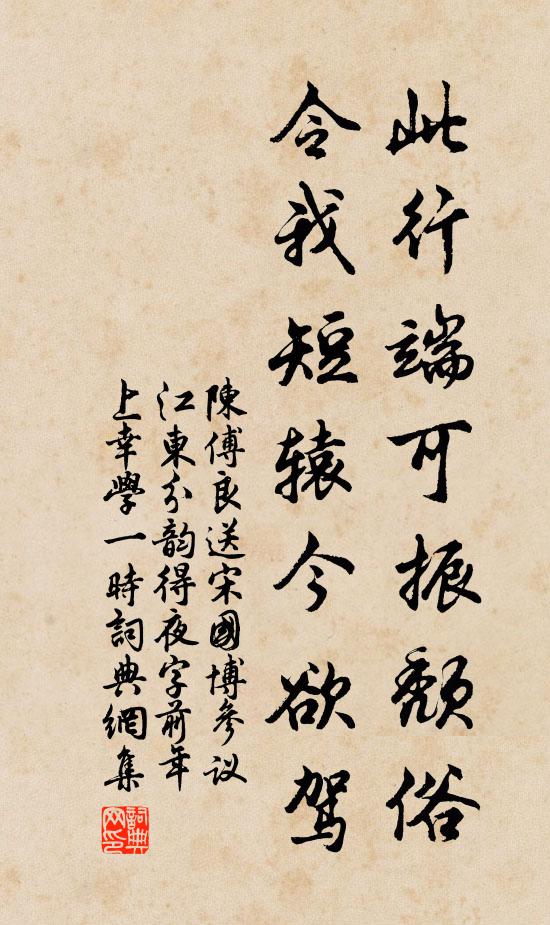 此行端可振颓俗
令我短辕今欲驾
陳傅良送宋國博參议
江東分韵得夜字前年
上幸學一時詞典網集
詞典网印